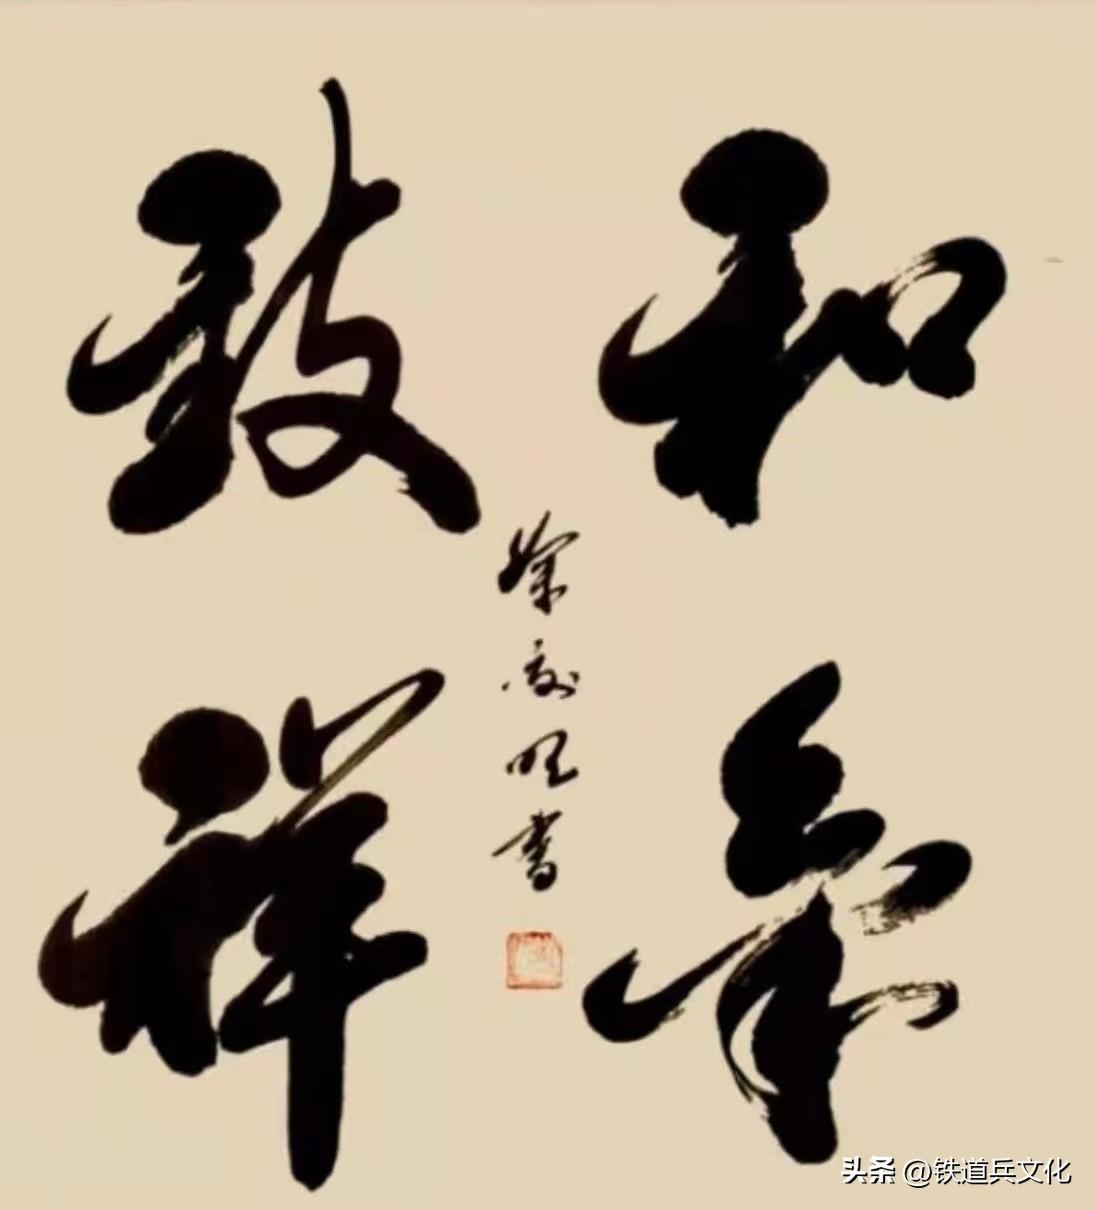 和氣
致祥
徐書
头条 @铁道兵文化